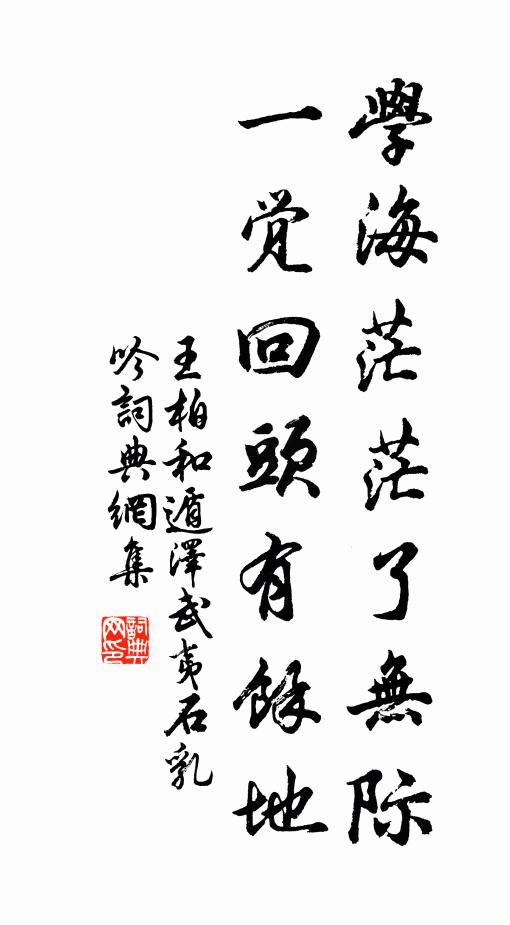 學海茫茫了無际
一觉回頭有餘地
王柏和遁澤武夷石乳
吟詞典網集
詞典网印